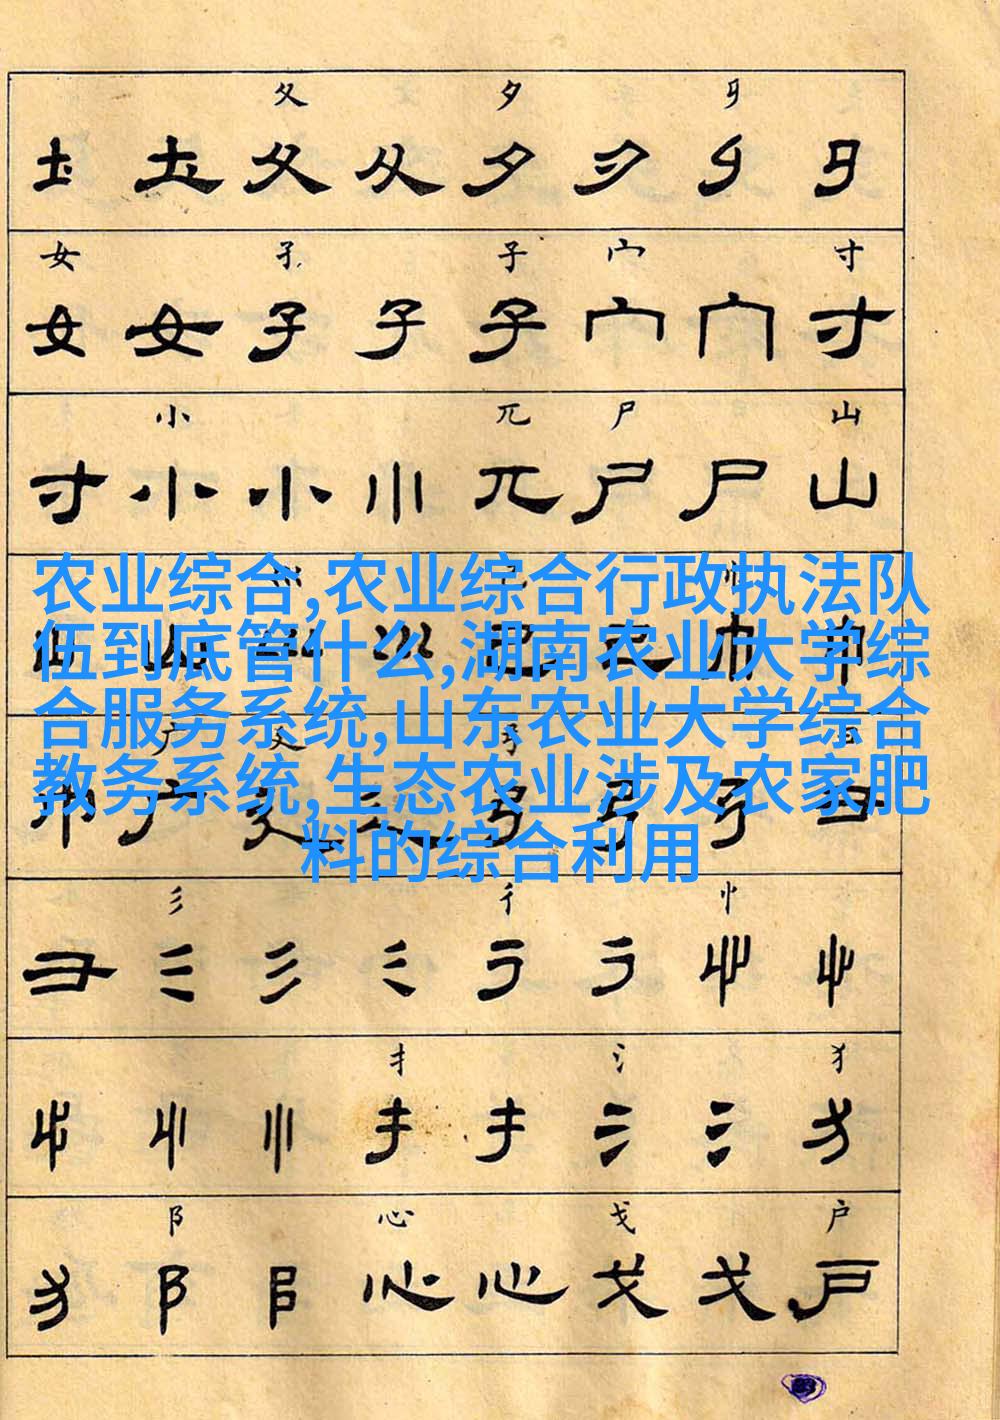 夂 夕 彑
土 土 夂 夂 夕 夕
女 孑 子 宀 寸
女 女 子 子 子 宀 宀 寸
小 兀 尸 山
寸 小 小 兀 尸 尸 山
农业综合,农业综合行政执法队
伍到底管什么,湖南农业大学综
合服务系统,山东农业大学综合
教务系统,生态农业涉及农家肥
料的综合利用
彡 彳 忄
彐 彡 彡 彡 彳 彳 忄 忄
扌 氵 犭
忄 忄 忄 扌 扌 氵 氵 犭
阝 心 戈 户
犭 阝 阝 心 心 戈 戈 户